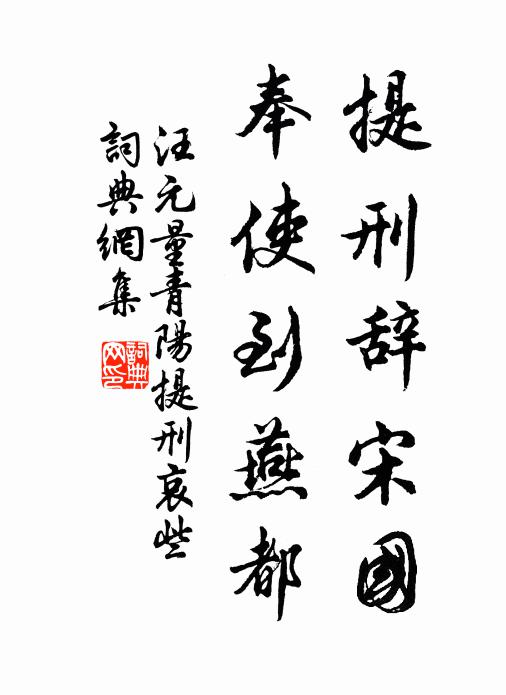 提刑辞宋國
奉使到燕都
汪元量青陽提刑哀些
詞典網集
詞典網印